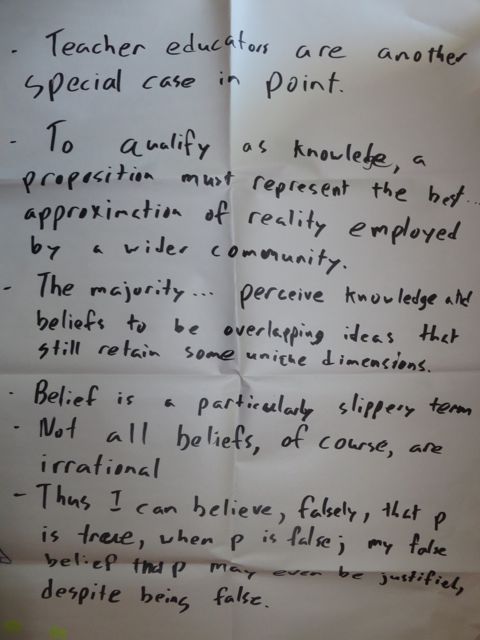 - Teacher educators are another
special case in point.
- To qualify as knowledge, a
proposition must represent the best...
approximation of reality employed
by a wider community.
- The majority... perceive knowledge and
beliefs to be overlapping ideas that
still retain some unique dimensions.
- Belief is a particularly slippery term
- Not all beliefs, of course, are
irrational
- Thus I can believe, falsely, that p
is true, when p is false; my false
belief that p may even be justified,
despite being false.